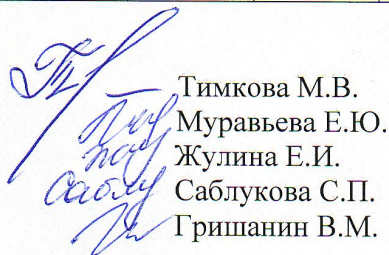 Тимкова М.В.
Муравьева Е.Ю.
Жулина Е.И.
Саблукова С.П.
Гришанин В.М.